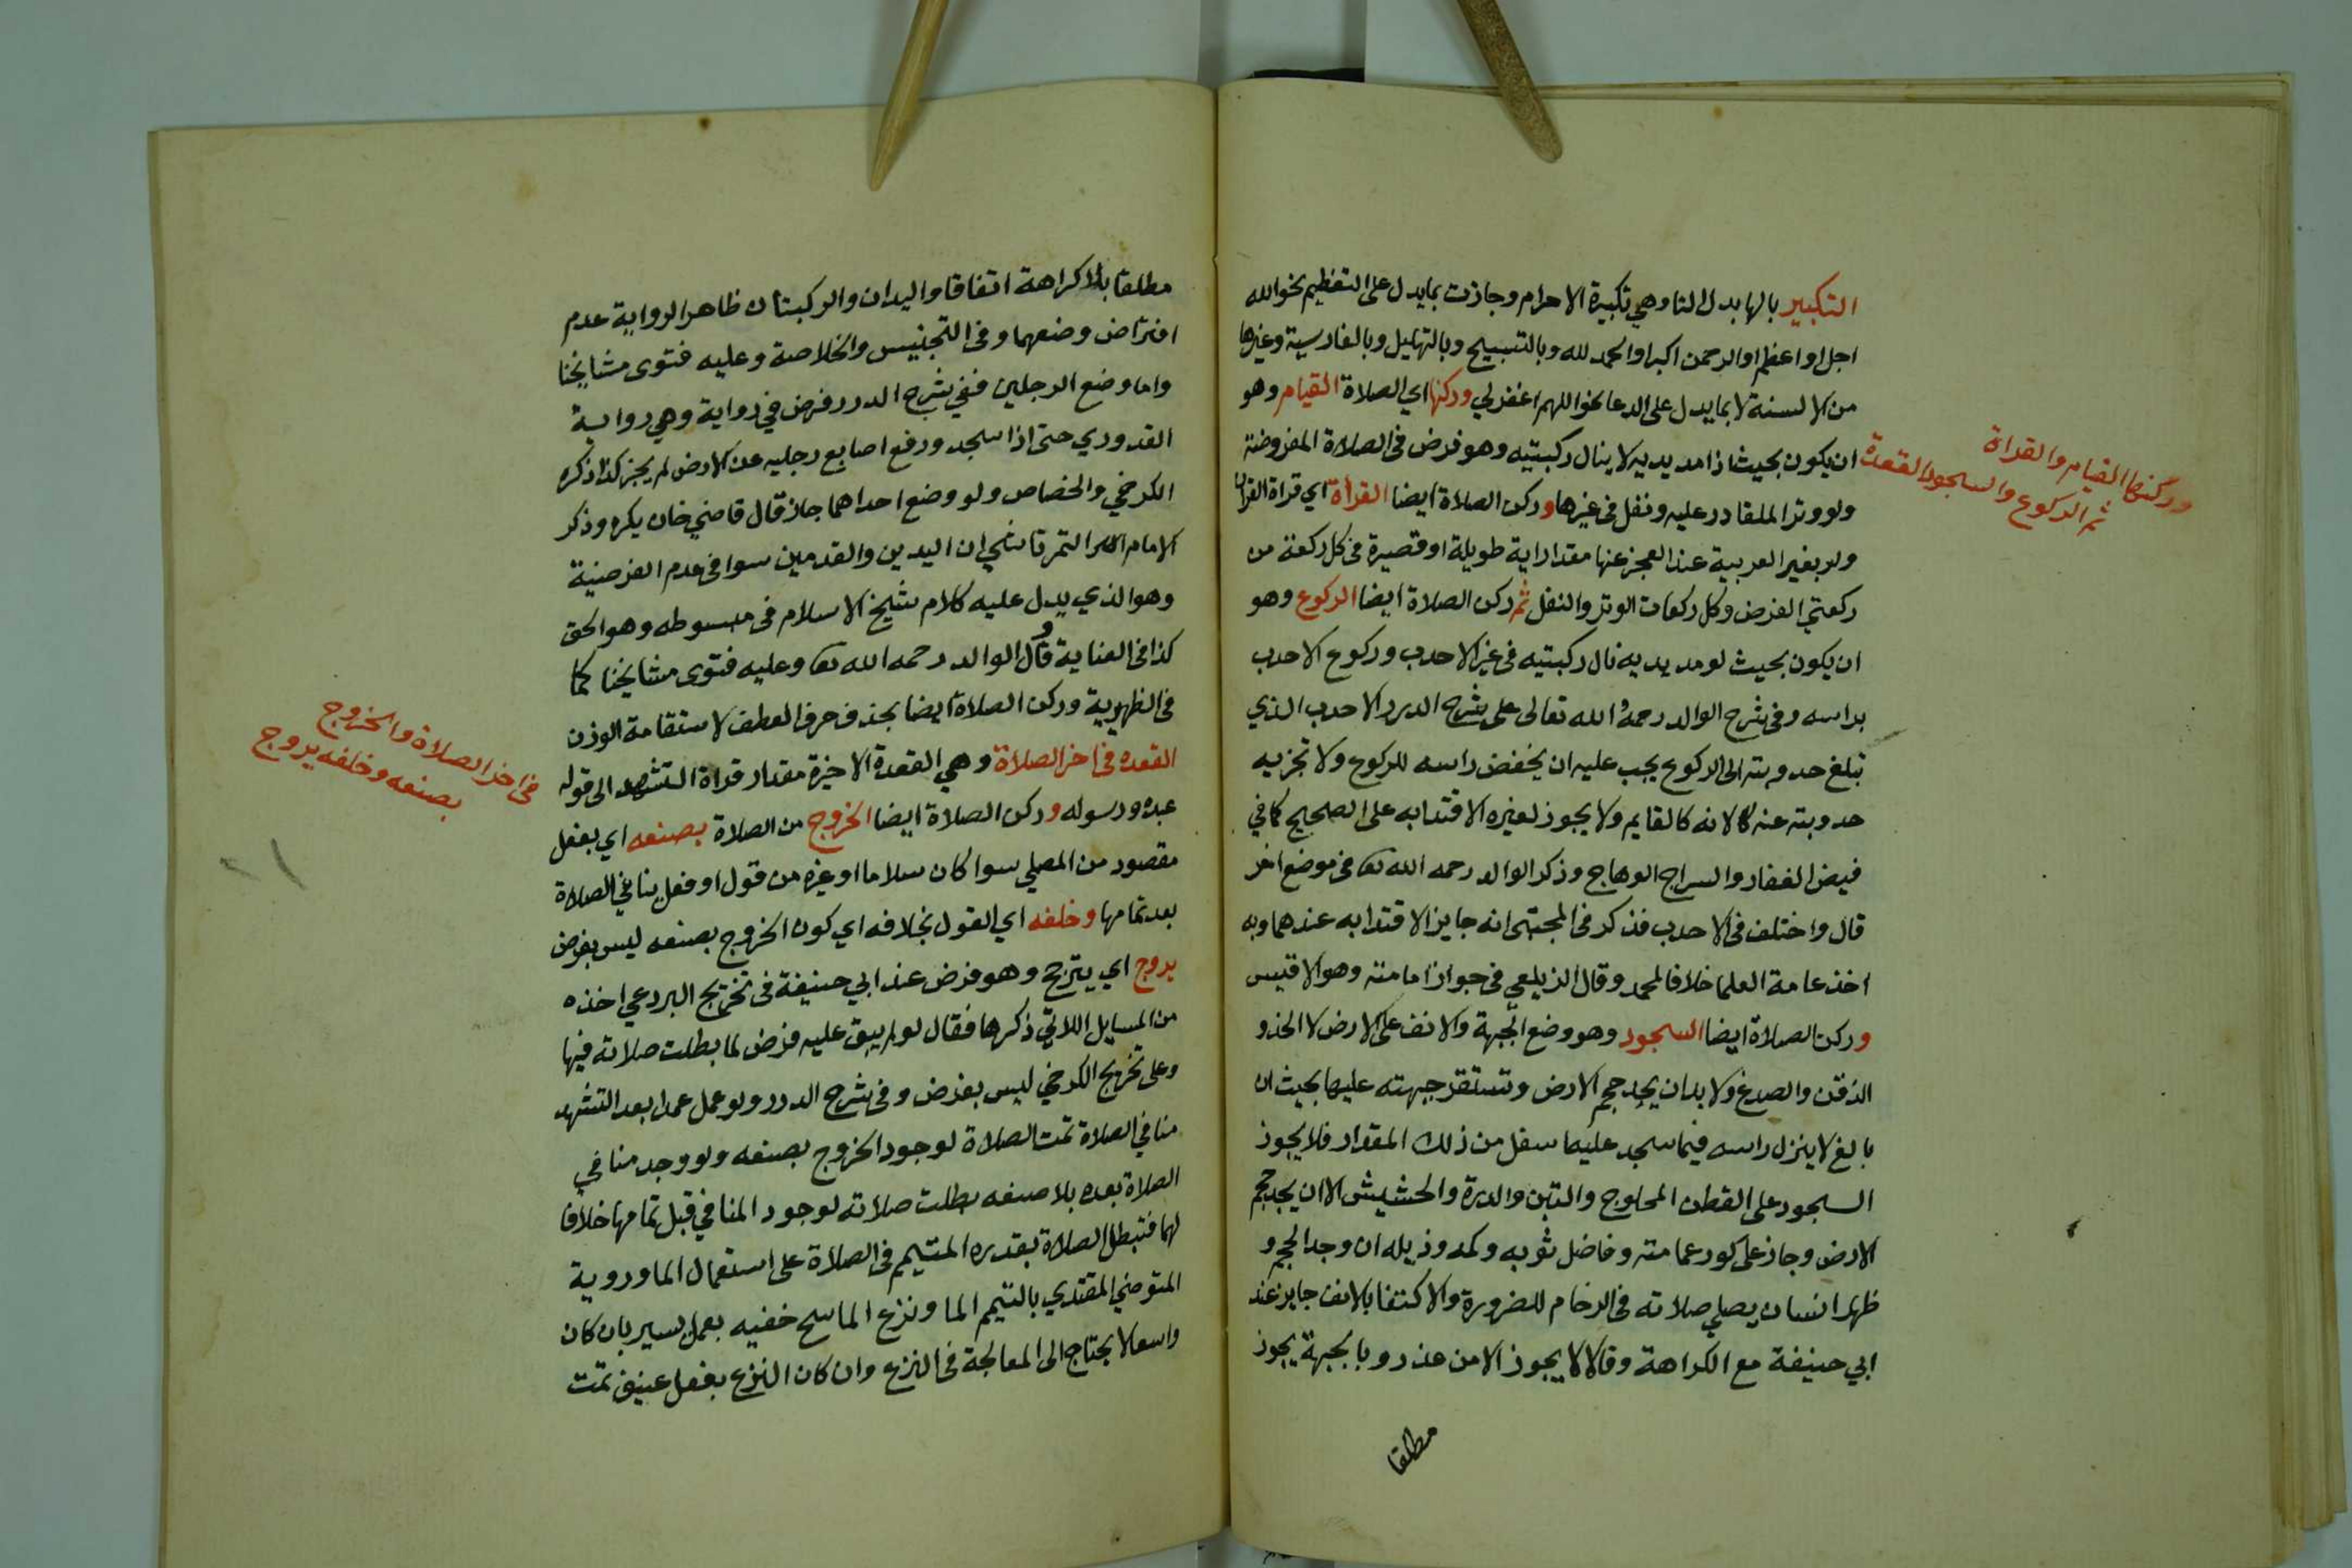 التكبير بالها بدل التا وهي تكبيرة الاحرام وجازت بما يدل على التعظيم نحو الله
اجل او اعظم او الرحمن اكبر او الحمد لله وبالتسبيح وبالتهليل وبالفارسية وغيرها
من الالسنة لا بما يدل على الدعا نحو اللهم اغفر لي وركنها اي الصلاة القيام وهو
ان يكون بحيث اذا مد يديه لا ينال ركبتيه وهو فرض في الصلاة المفروضة
ولو وترا للقادر عليه ونفل في غيرها وركن الصلاة ايضا القرأة اي قراة القران
ولو بغير العربية عند العجز عنها مقدار اية طويلة او قصيرة في كل ركعة من
ركعتي الفرض وكل ركعات الوتر والنفل ثم ركن الصلاة ايضا الركوع وهو
ان يكون بحيث لو مد يديه نال ركبتيه في غير الاحدب وركوع الاحدب
براسه وفي شرح الوالد رحمه الله تعالى على شرح الدرر الاحدب الذي
تبلغ حدوبته الى الركوع يجب عليه ان يخفض راسه للركوع ولا تجزيه
حدوبته عنه لانه كالقايم ولا يجوز لغيره الاقتدا به على الصحيح كما في
فيض الغفار والسراج الوهاج وذكر الوالد رحمه الله تع في موضع اخر
قال واختلف في الاحدب فذكر في المجتبى انه جايز الاقتدا به عندهما وبه
اخذ عامة العلما خلافا لمحمد وقال الزيلعي في جواز امامته وهو الاقيس
وركن الصلاة ايضا السجود وهو وضع الجبهة والانف على الارض لا الخد و
الذقن والصدغ ولا بد ان يجد حجم الارض وتستقر جبهته عليها بحيث ان
بالغ لا ينزل راسه فيما سجد عليه اسفل من ذلك المقدار فلا يجوز
السجود على القطن المحلوج والتبن والذرة والحشيش الا ان يجد حجم
الارض وجاز على كور عمامته وفاضل ثوبه وكمه وذيله ان وجد الحجم و
ظهر انسان يصلي صلاته في الزحام للضرورة والاكتفا بالانف جايز عند
ابي حنيفة مع الكراهة وقالا لا يجوز الا من عذر وبالجبهة يجوز
مطلقا
وركنها القيام والقراة
ثم الركوع والسجود القعدة
مطلقا بلا كراهة اتفاقا واليدان والركبتان ظاهر الرواية عدم
افتراض وضعهما وفي التجنيس والخلاصة وعليه فتوى مشايخنا
واما وضع الرجلين ففي شرح الدرر فرض في رواية وهي رواية
القدوري حتى اذا سجد ورفع اصابع رجليه عن الارض لم يجز كذا ذكره
الكرخي والخصاص ولو وضع احداهما جاز قال قاضي خان يكره وذكر
الامام التمرتاشي ان اليدين والقدمين سوا في عدم الفرضية
وهو الذي يدل عليه كلام شيخ الاسلام في مبسوطه وهو الحق
كذا في العناية وقال الوالد رحمه الله تع وعليه فتوى مشايخنا كما
في الظهيرية وركن الصلاة ايضا بحذف حرف العطف لاستقامة الوزن
القعده في اخر الصلاة وهي القعدة الاخيرة مقدار قراة التشهد الى قوله
عبده ورسوله وركن الصلاة ايضا الخروج من الصلاة بصنعه اي بفعل
مقصود من المصلي سوا كان سلاما او غيره من قول او فعل ينافي الصلاة
بعد تمامها وخلفه اي القول بخلافه اي كون الخروج بصنعه ليس بفرض
يروج اي يترجح وهو فرض عند ابي حنيفة في تخريج البردعي اخذه
من المسايل اللاتي ذكرها فقال لو لم يبق عليه فرض لما بطلت صلاته فيها
وعلى تخريج الكرخي ليس بفرض وفي شرح الدرر ولو عمل عمدا بعد التشهد
منافي الصلاة تمت الصلاة لوجود الخروج بصنعه ولو وجد منافي
الصلاة بعده بلا صنعه بطلت صلاته لوجود المنافي قبل تمامها خلافا
لهما فتبطل الصلاة بقدره المتيمم في الصلاة على استعمال الما وروية
المتوضي المقتدي بالتيمم الما ونزع الماسح خفيه بعمل يسير بان كان
واسعا لا يحتاج الى المعالجة في النزع وان كان النزع بفعل عنيف تمت
في اخر الصلاة والخروج
بصنعه وخلفه يروج